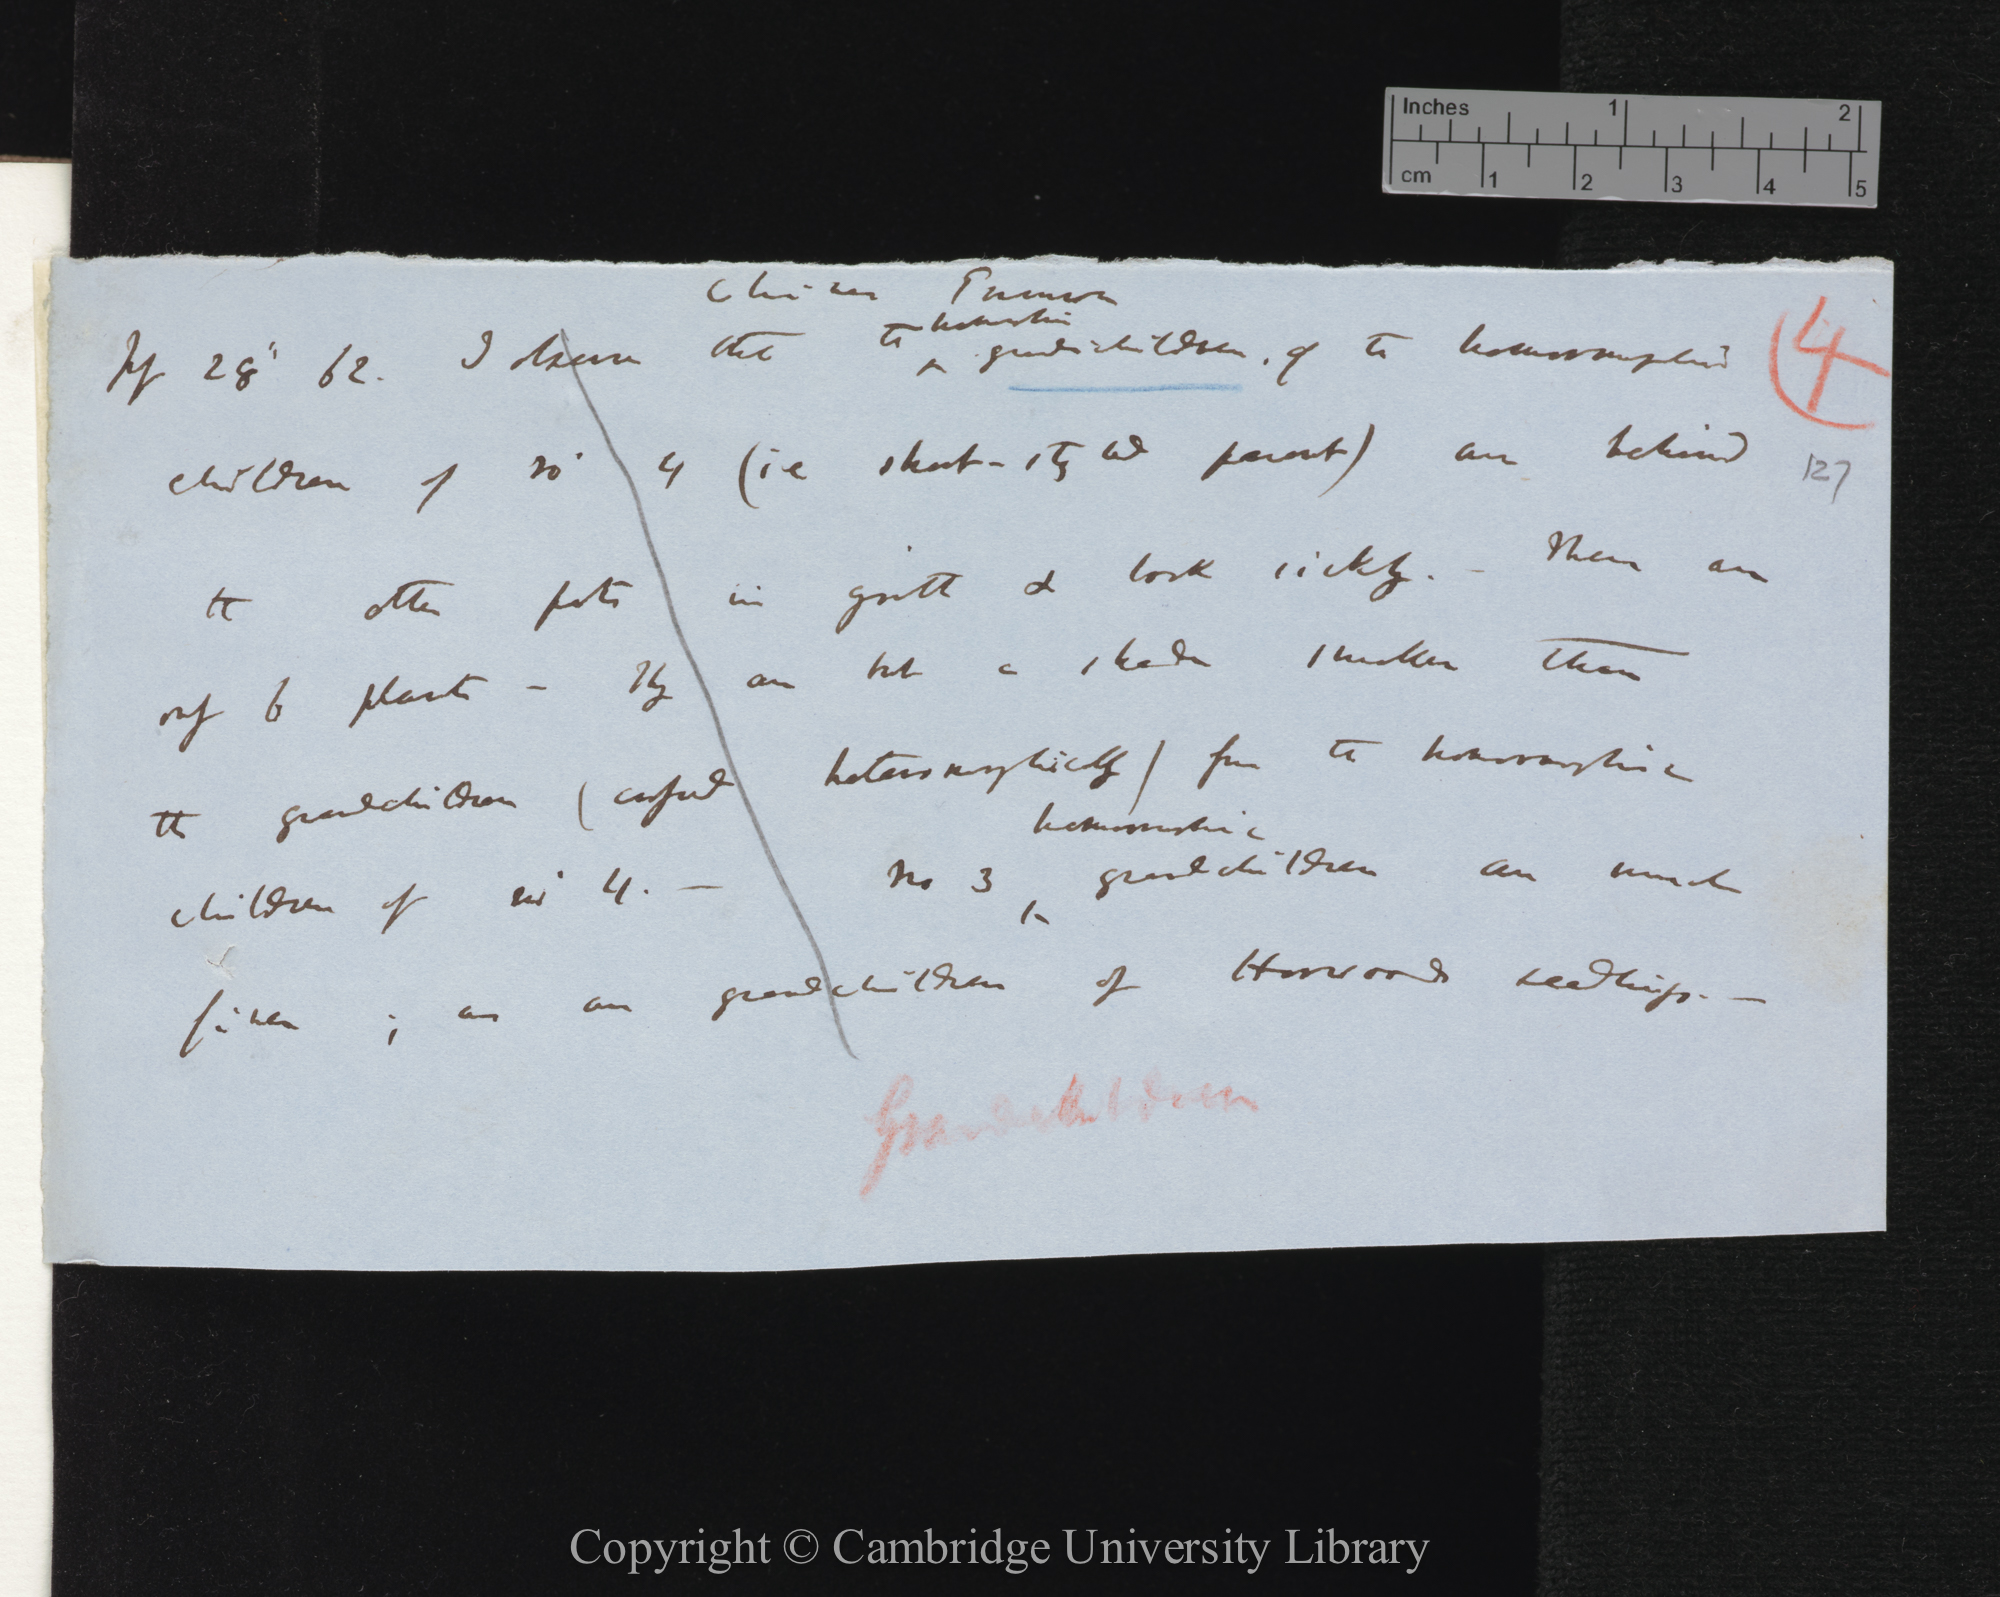 Inches 1 2
cm 1 2 3 4 5
Chinese Primrose
homorphic
July 28' 62. I observe that the ^ grandchildren, of the homomorphic
(4
children of no' 4 (ie short-styled parent) are behind
127
the other pots in growth & look sickly. - There are
only 6 plants - They are but a shade smaller than
the grandchildren (crossed heteromorphically) from the homomorphic
homomorphic
children of no' 4. — No 3 ^ grandchildren are much
finer ; as are grandchildren of Horwoods seedlings. —
Grandchildren
Copyright © Cambridge University Library